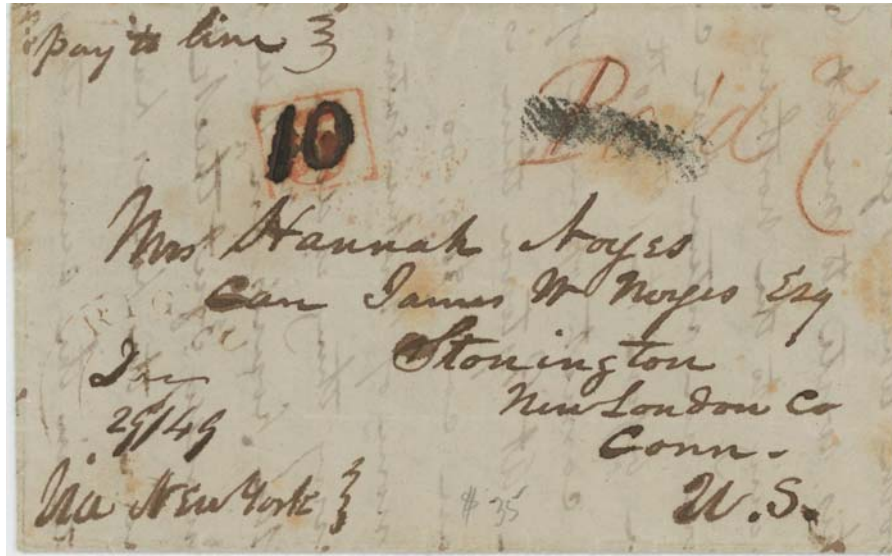 pay to line
10
Paid 7
Mrs Hannah Noyes
Care James W Noyes Esq
Stonington
Dec
New London Co
29/49
Conn.
Via New York
$35
U.S.